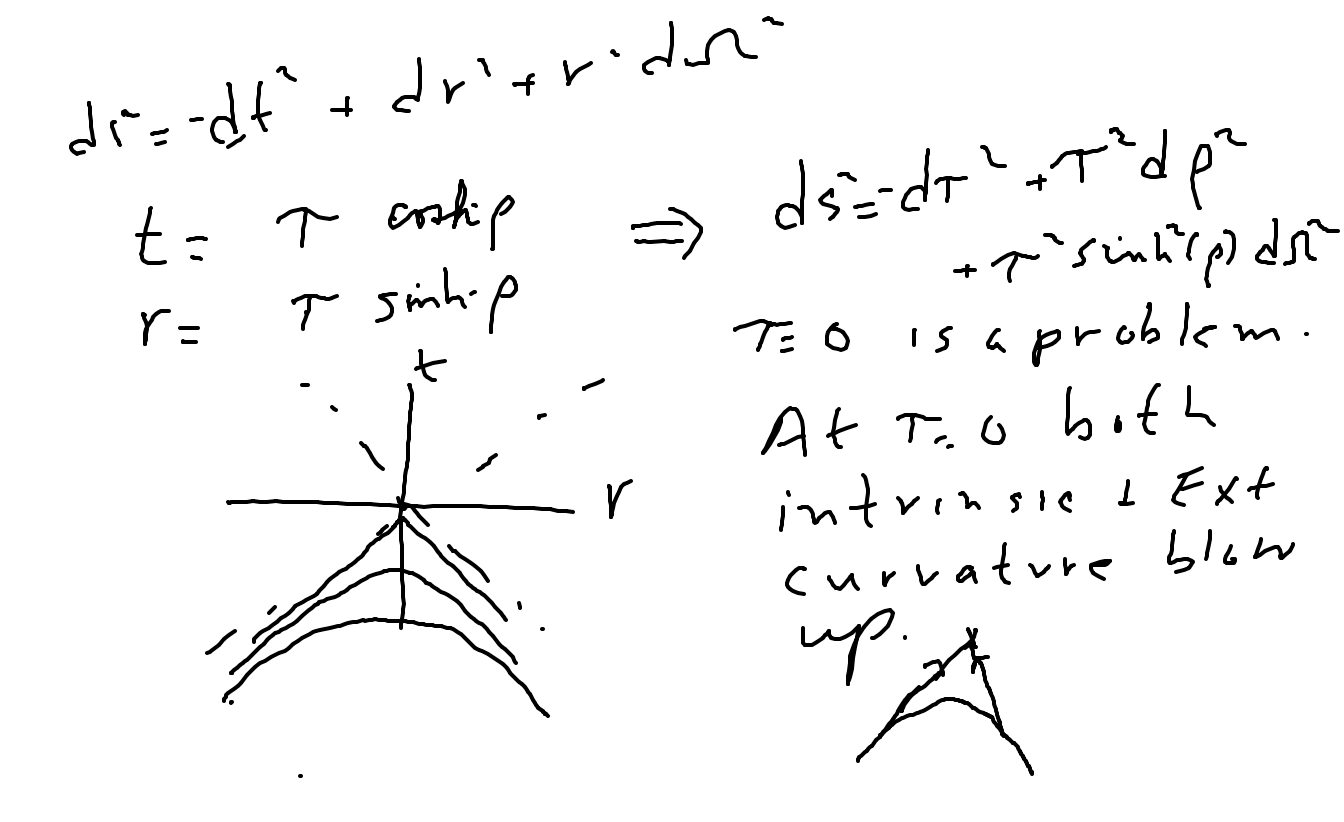 ds² = -dt² + dr² + r² dΩ²
t = τ coshρ
r = τ sinhρ
⇒ ds² = -dτ² + τ² dρ²
+ τ² sinh²(ρ) dΩ²
τ = 0 is a problem.
At τ = 0 both
intrinsic & Ext
curvature blow
up.
t
r